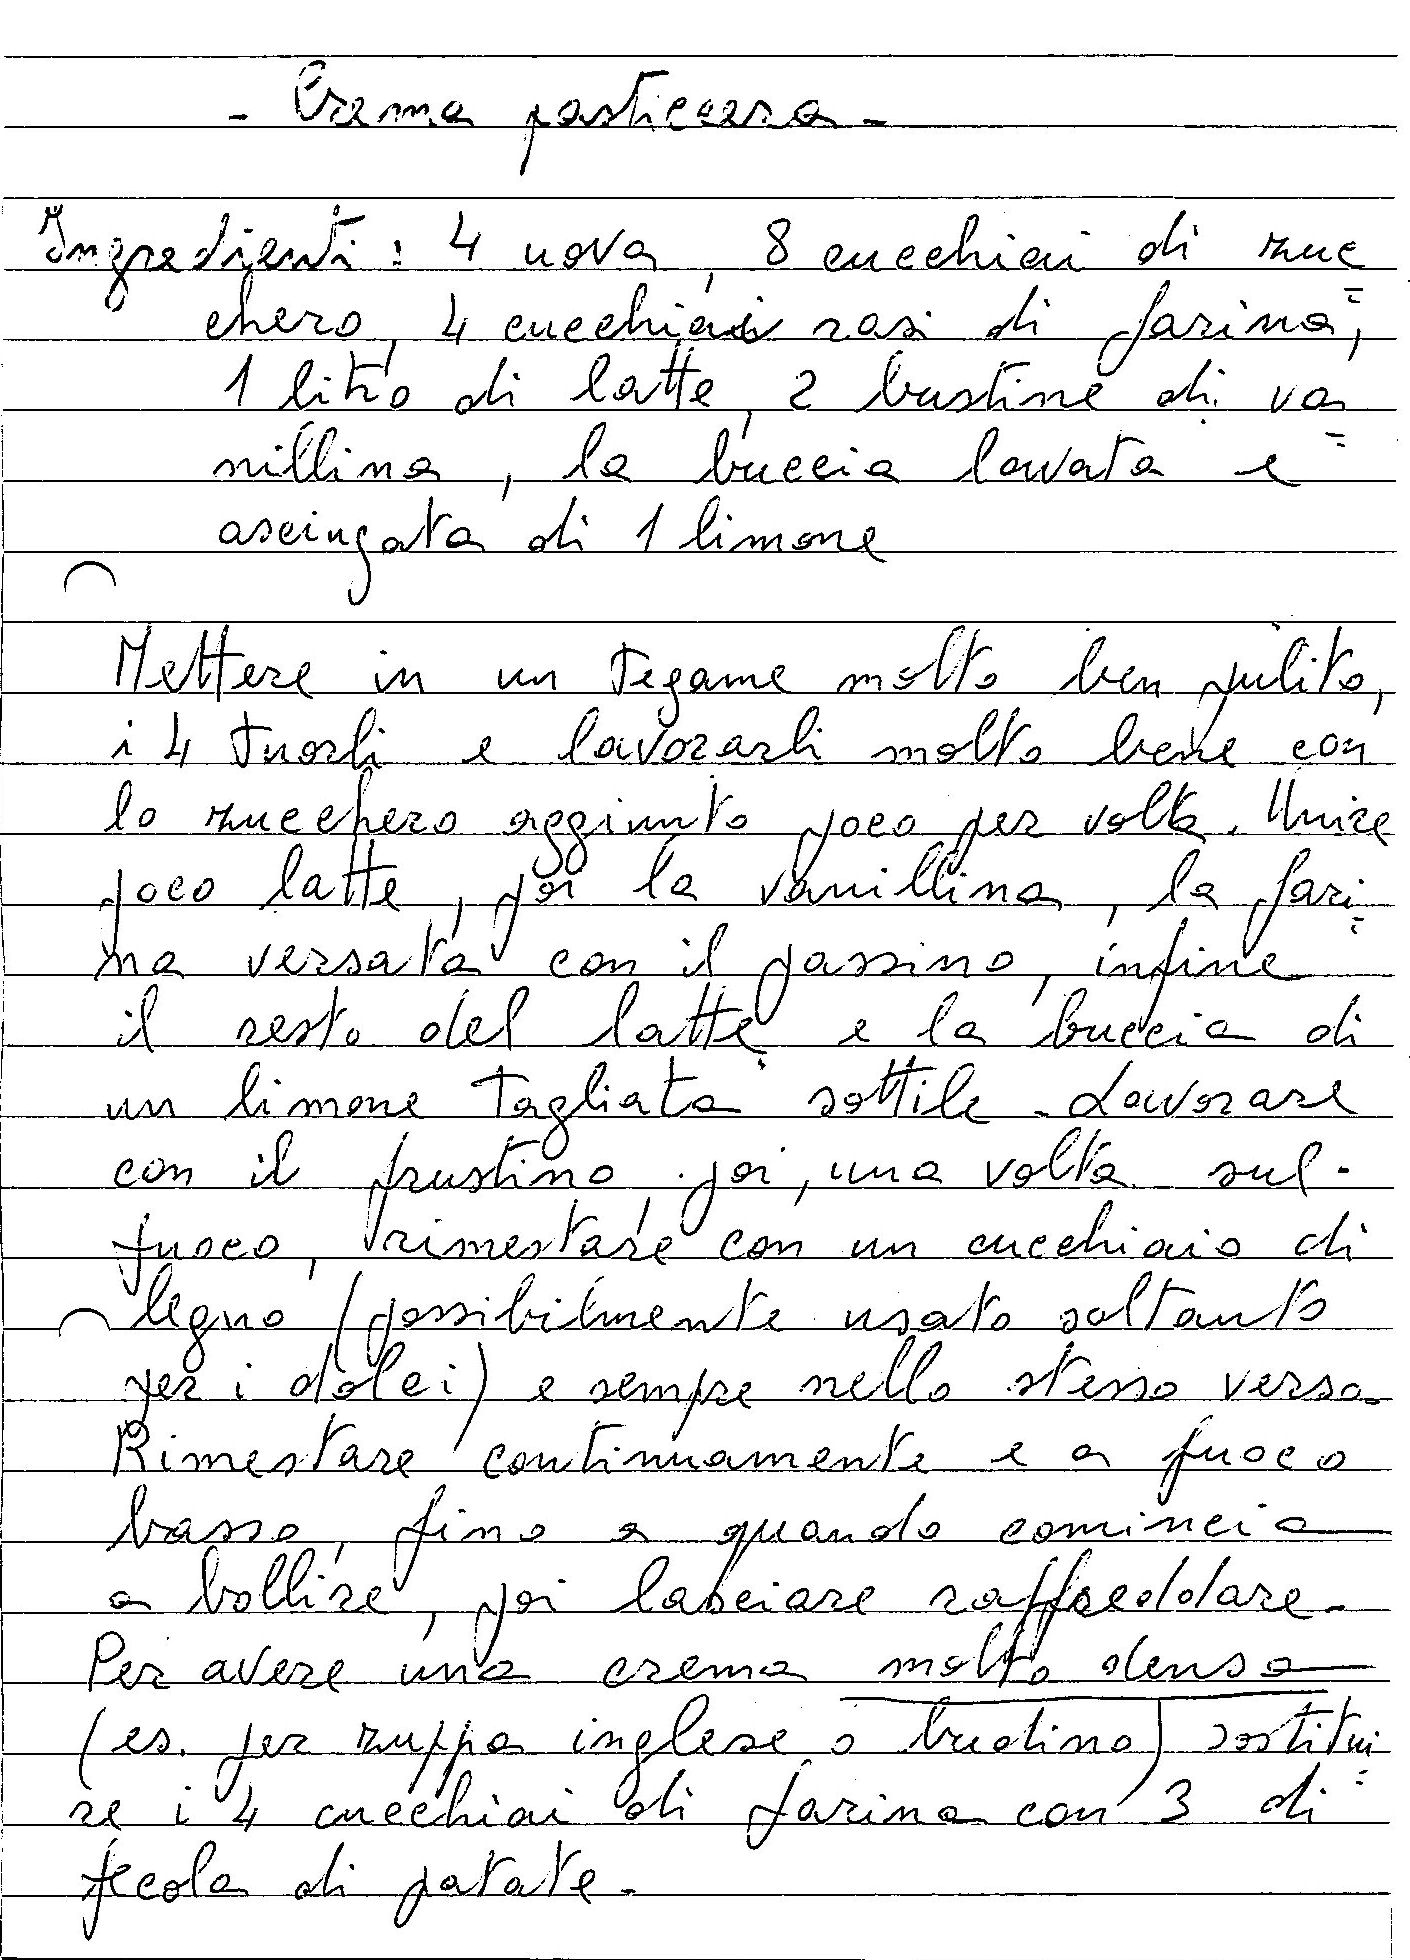 - Crema pasticcera -
Ingredienti: 4 uova, 8 cucchiai di zuc=
chero, 4 cucchiai rasi di farina,
1 litro di latte, 2 bustine di va=
nillina, la buccia lavata e
asciugata di 1 limone
Mettere in un tegame molto ben pulito,
i 4 tuorli e lavorarli molto bene con
lo zucchero aggiunto poco per volta. Unire
poco latte, poi la vanillina, la fari=
na versata con il passino, infine
il resto del latte e la buccia di
un limone tagliata sottile. Lavorare
con il frustino, poi, una volta sul
fuoco, rimestare con un cucchiaio di
legno (possibilmente usato soltanto
per i dolci) e sempre nello stesso verso.
Rimestare continuamente e a fuoco
basso, fino a quando comincia
a bollire, poi lasciare raffreddare.
Per avere una crema molto densa
(es. per zuppa inglese o budino) sostitui=
re i 4 cucchiai di farina con 3 di
fecola di patate.